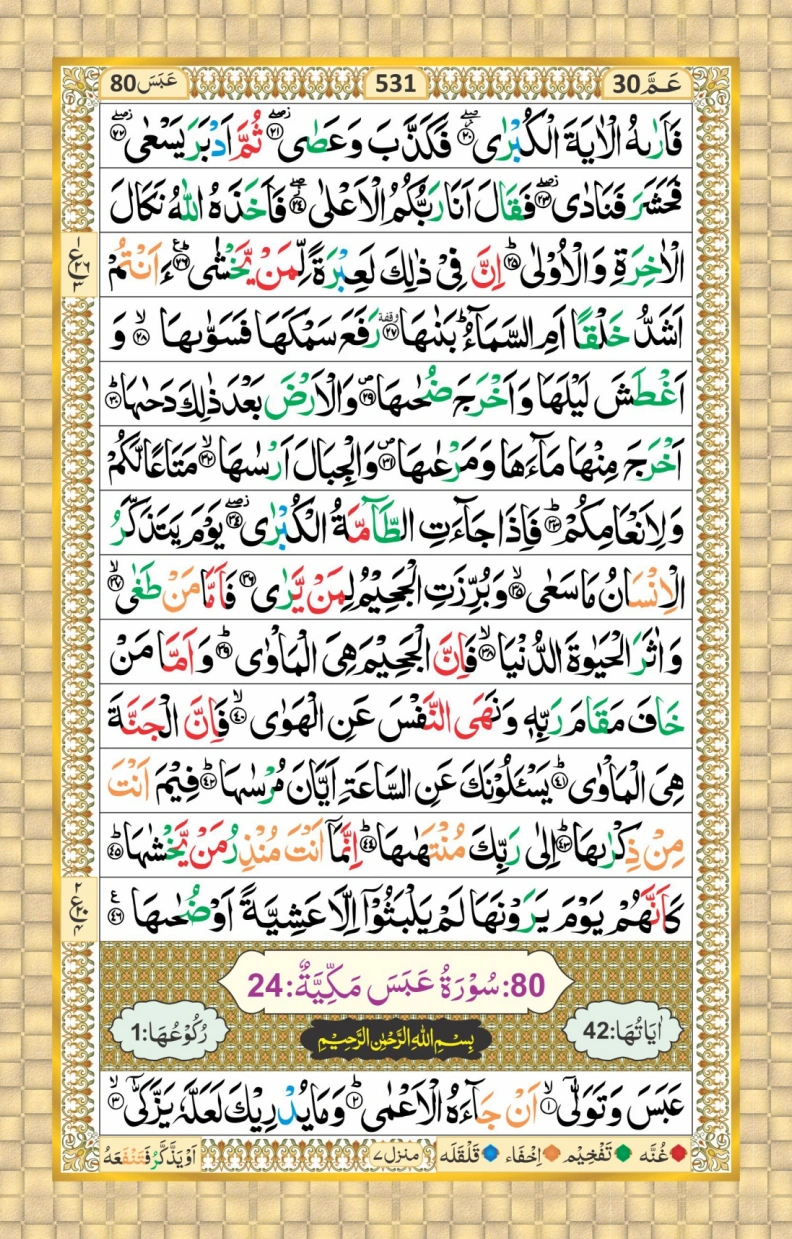 عَبَسَ 80 531 عَمَّ 30
فَاَرٰىهُ الْاٰيَةَ الْكُبْرٰى ۖ﴿۲۰﴾ فَكَذَّبَ وَعَصٰى ۖ﴿۲۱﴾ ثُمَّ اَدْبَرَ يَسْعٰى ۖ﴿۲۲﴾
فَحَشَرَ فَنَادٰى ۖ﴿۲۳﴾ فَقَالَ اَنَا رَبُّكُمُ الْاَعْلٰى ۖ﴿۲۴﴾ فَاَخَذَهُ اللّٰهُ نَكَالَ
الْاٰخِرَةِ وَالْاُوْلٰى ؕ﴿۲۵﴾ اِنَّ فِيْ ذٰلِكَ لَعِبْرَةً لِّمَنْ يَّخْشٰى ؕ﴿۲۶﴾ ءَاَنْتُمْ
اَشَدُّ خَلْقًا اَمِ السَّمَآءُ ؕ بَنٰىهَا ﴿۲۷﴾ رَفَعَ سَمْكَهَا فَسَوّٰىهَا ۙ﴿۲۸﴾ وَ
اَغْطَشَ لَيْلَهَا وَاَخْرَجَ ضُحٰىهَا ۪﴿۲۹﴾ وَالْاَرْضَ بَعْدَ ذٰلِكَ دَحٰىهَا ؕ﴿۳۰﴾
اَخْرَجَ مِنْهَا مَآءَهَا وَمَرْعٰىهَا ۪﴿۳۱﴾ وَالْجِبَالَ اَرْسٰىهَا ۙ﴿۳۲﴾ مَتَاعًا لَّكُمْ
وَلِاَنْعَامِكُمْ ؕ﴿۳۳﴾ فَاِذَا جَآءَتِ الطَّآمَّةُ الْكُبْرٰى ۖ﴿۳۴﴾ يَوْمَ يَتَذَكَّرُ
الْاِنْسَانُ مَا سَعٰى ۙ﴿۳۵﴾ وَبُرِّزَتِ الْجَحِيْمُ لِمَنْ يَّرٰى ﴿۳۶﴾ فَاَمَّا مَنْ طَغٰى ۙ﴿۳۷﴾
وَاٰثَرَ الْحَيٰوةَ الدُّنْيَا ۙ﴿۳۸﴾ فَاِنَّ الْجَحِيْمَ هِيَ الْمَاْوٰى ؕ﴿۳۹﴾ وَاَمَّا مَنْ
خَافَ مَقَامَ رَبِّهٖ وَنَهَى النَّفْسَ عَنِ الْهَوٰى ۙ﴿۴۰﴾ فَاِنَّ الْجَنَّةَ
هِيَ الْمَاْوٰى ؕ﴿۴۱﴾ يَسْـَٔلُوْنَكَ عَنِ السَّاعَةِ اَيَّانَ مُرْسٰىهَا ؕ﴿۴۲﴾ فِيْمَ اَنْتَ
مِنْ ذِكْرٰىهَا ؕ﴿۴۳﴾ اِلٰى رَبِّكَ مُنْتَهٰىهَا ؕ﴿۴۴﴾ اِنَّمَآ اَنْتَ مُنْذِرُ مَنْ يَّخْشٰىهَا ؕ﴿۴۵﴾
كَاَنَّهُمْ يَوْمَ يَرَوْنَهَا لَمْ يَلْبَثُوْٓا اِلَّا عَشِيَّةً اَوْ ضُحٰىهَا ﴿۴۶﴾
80: سُوْرَةُ عَبَسَ مَكِّيَّةٌ :24
اٰيَاتُهَا:42
رُكُوْعُهَا:1
بِسْمِ اللّٰهِ الرَّحْمٰنِ الرَّحِيْمِ
عَبَسَ وَتَوَلّٰىٓ ۙ﴿۱﴾ اَنْ جَآءَهُ الْاَعْمٰى ؕ﴿۲﴾ وَمَا يُدْرِيْكَ لَعَلَّهٗ يَزَّكّٰىٓ ۙ﴿۳﴾
غُنَّه تَفْخِيْم اِخْفَاء قَلْقَلَه منزل ۷ اَوْ يَذَّكَّرُ فَتَنْفَعَهُ
۱ ع ۲۶ ۳
۲ ع ۲۰ ۴